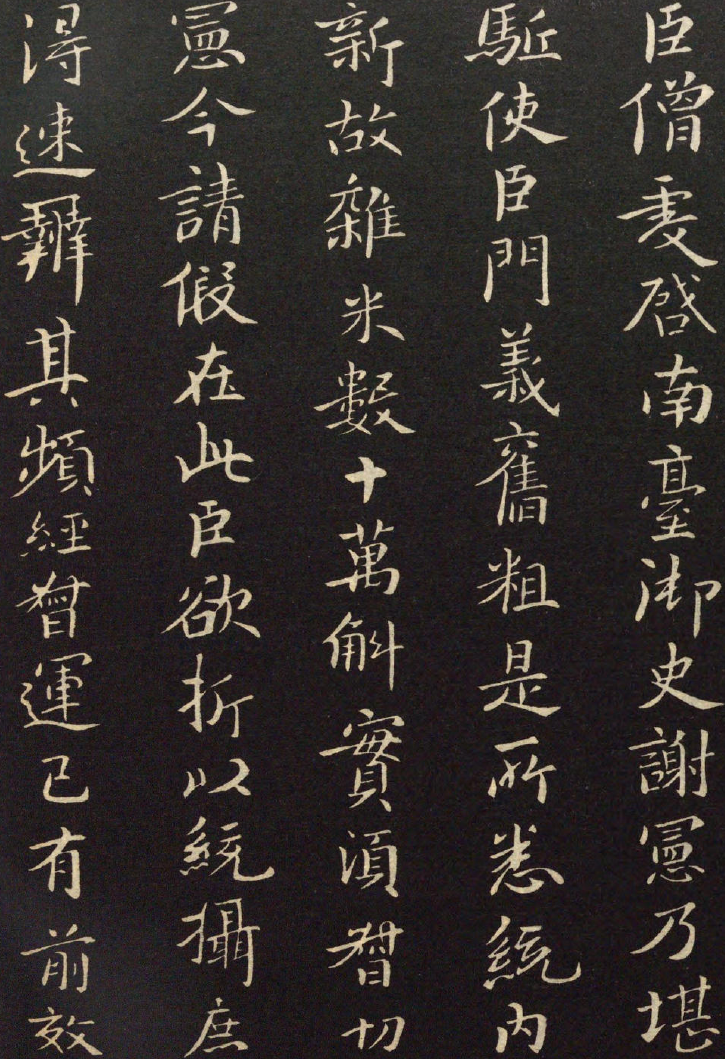 臣僧虔啓南臺御史謝憲乃堪
駈使臣門義舊粗是所悉統内
新故雜米數十萬斛實須督切
憲今請假在此臣欲折以統攝庶
得速辦其頻經督運已有前效